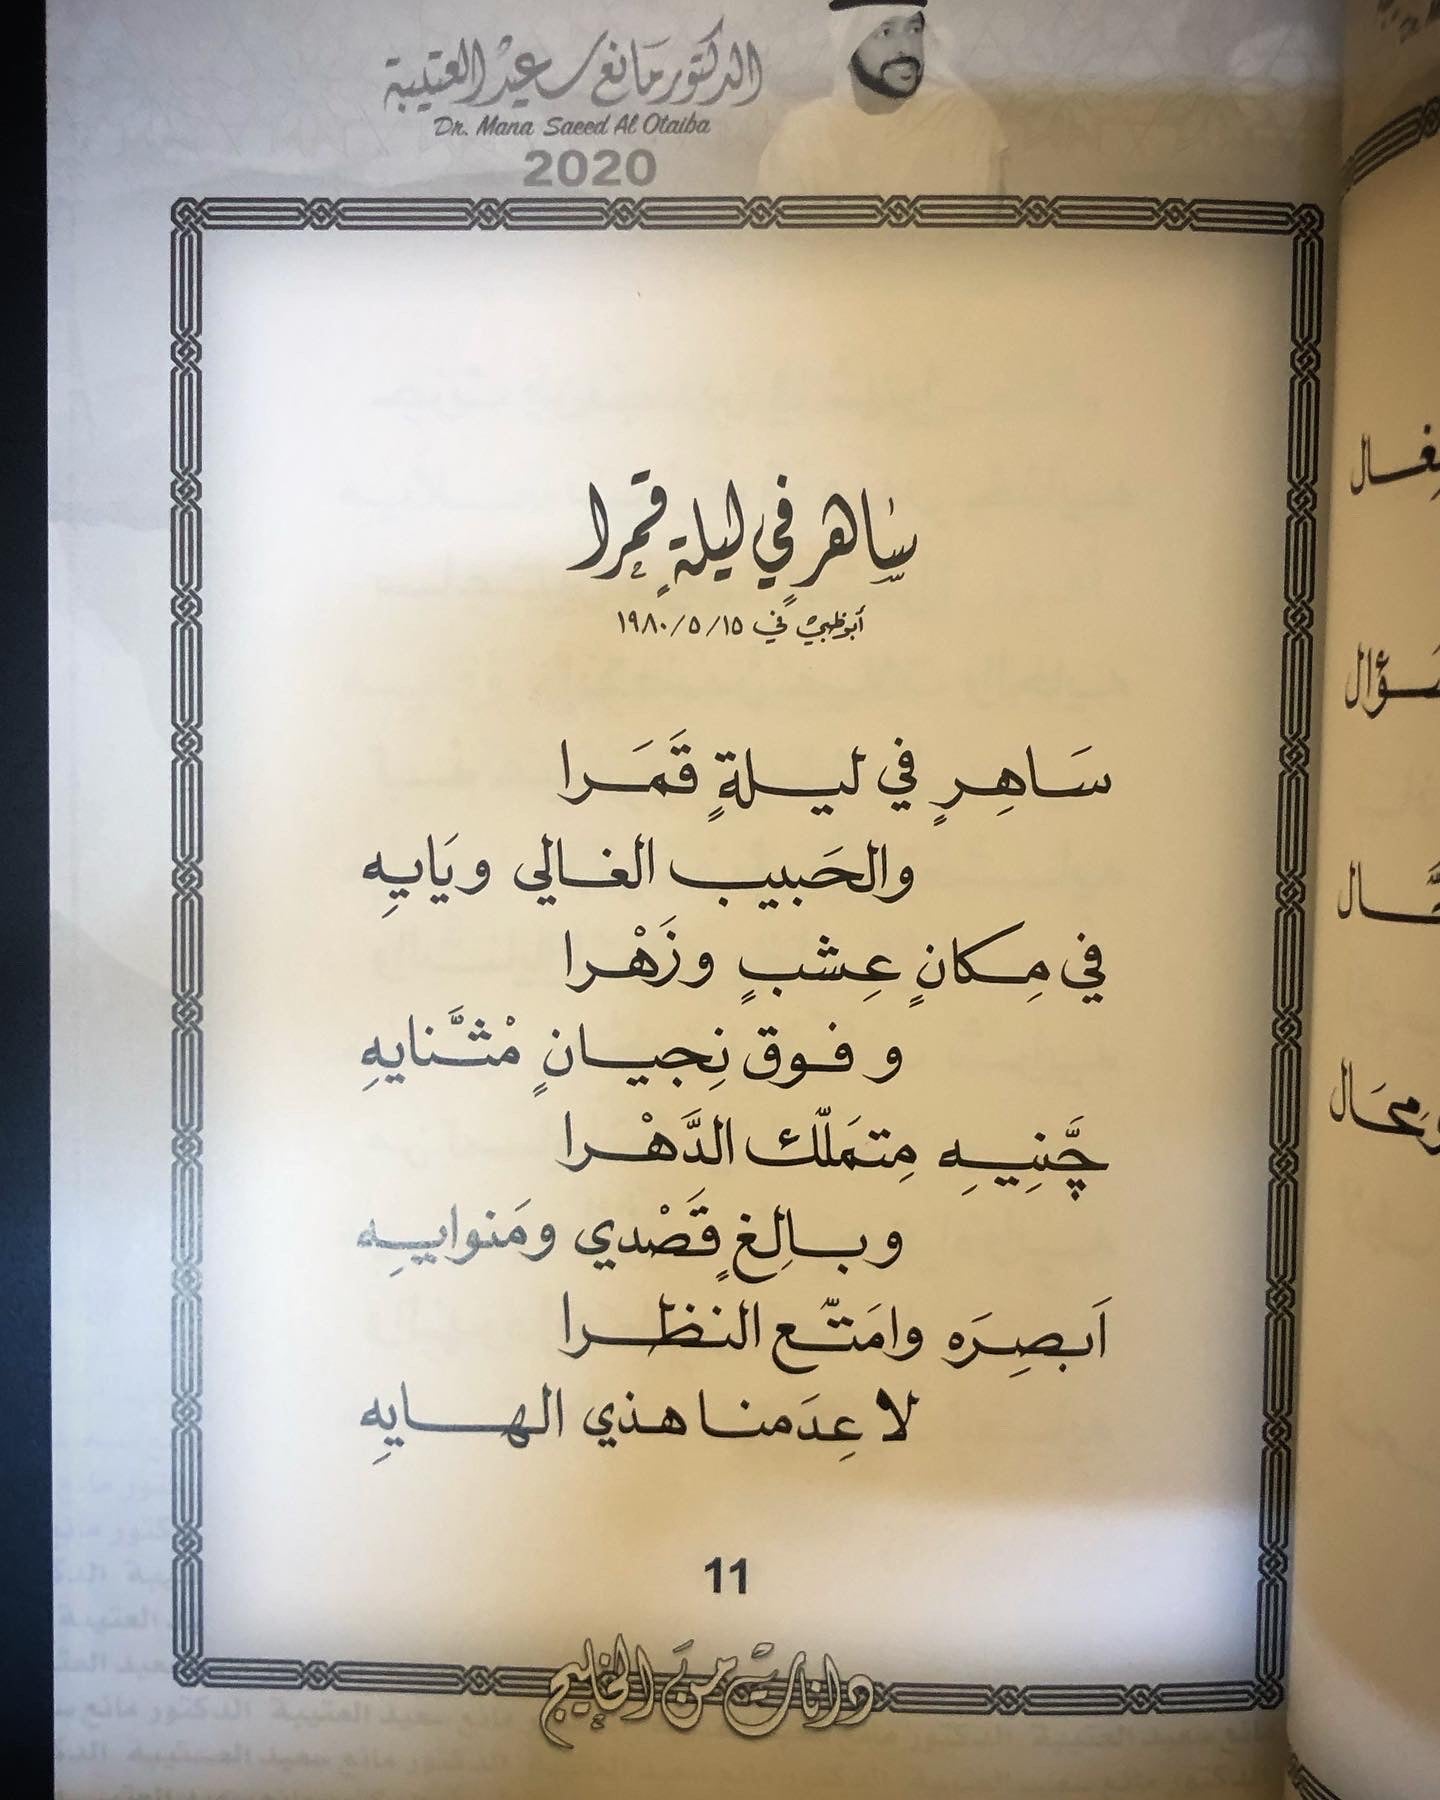 الدكتور مانع سعيد العتيبة
Dr. Mana Saeed Al Otaiba
2020
ساهرٍ في ليلةٍ قمرا
أبوظبي في ١٩٨٠/٥/١٥
سَاهِرٍ في ليلةٍ قَمَرا
والحَبيب الغالي ويَايهِ
في مِكانٍ عِشبٍ وزَهْرا
و فوق نِجيانٍ مْثَّنايهِ
چَّنِيهِ مِتمَلّك الدَّهْرا
وبالِغٍ قَصْدي ومَنوايهِ
اَبصِرَه وامَتّع النظرا
لا عِدَمنا هذي الهايهِ
11
دانات من الخليج
ـؤال
ومحَال